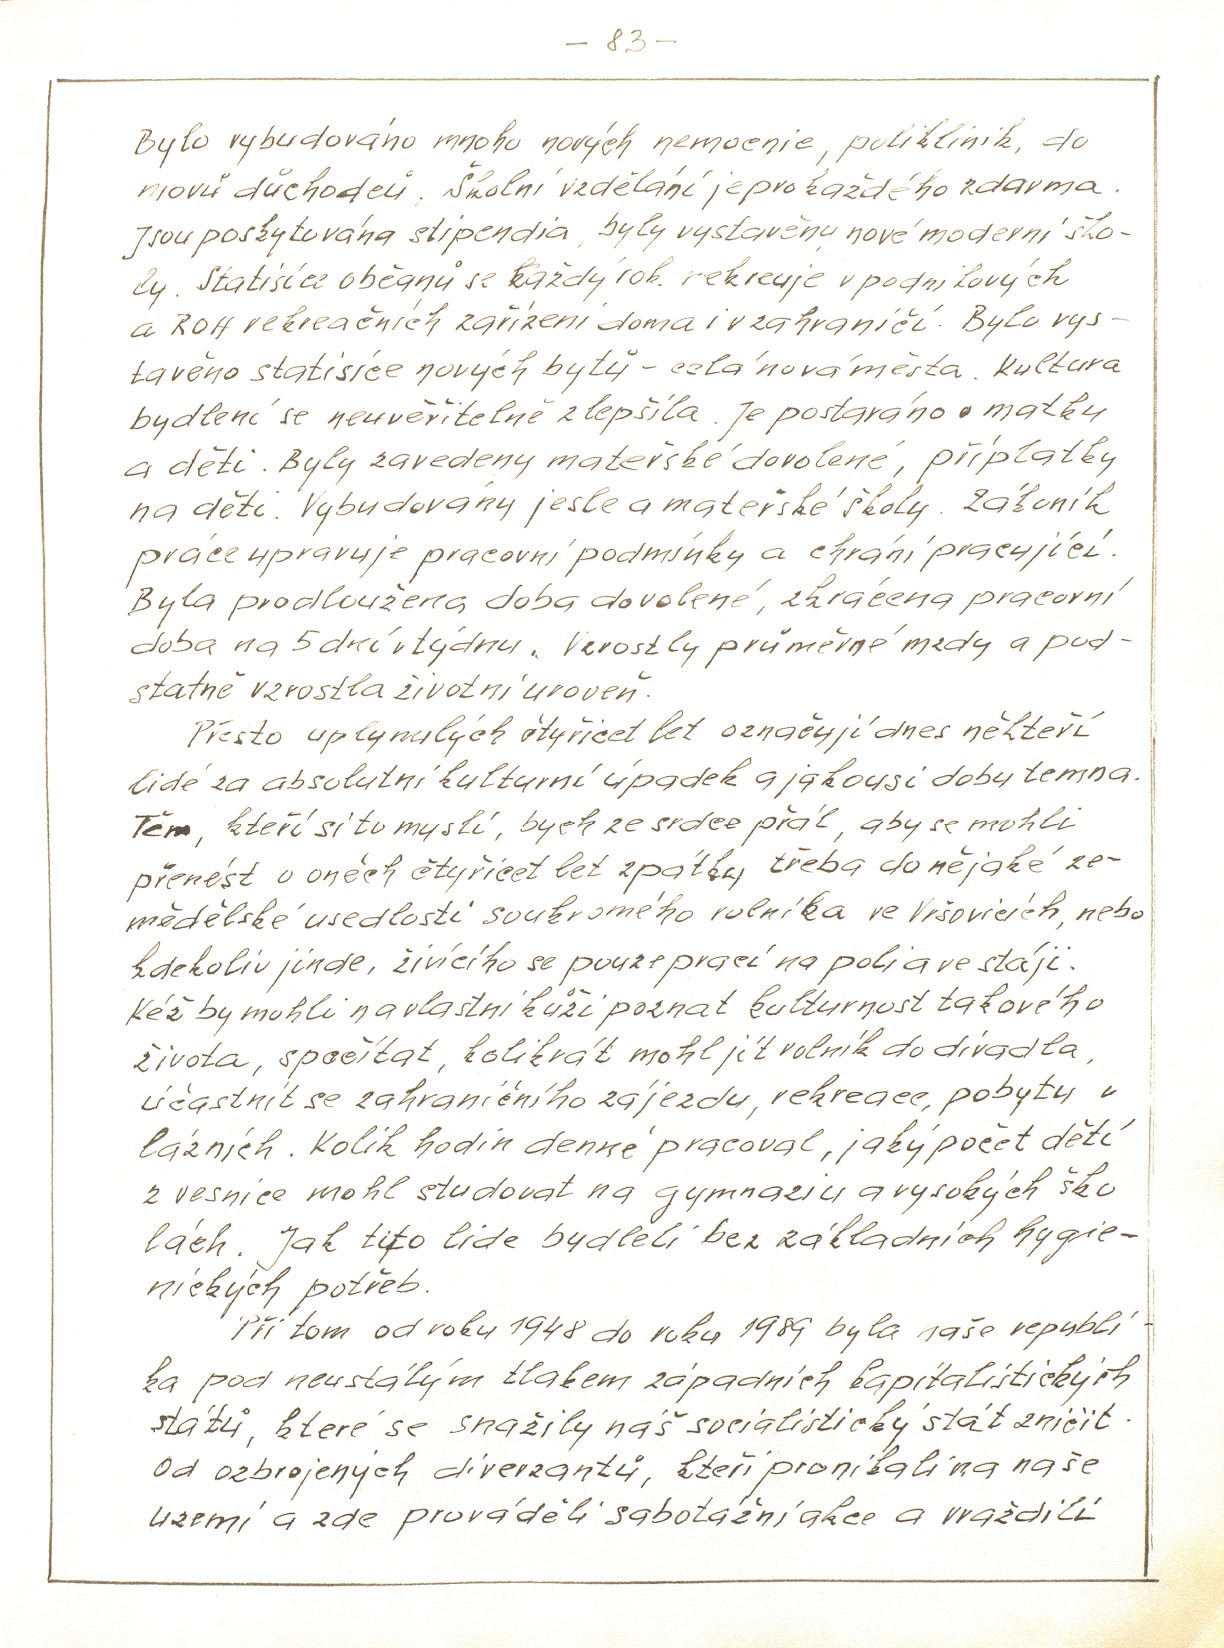 - 83 -
Bylo vybudováno mnoho nových nemocnic, poliklinik, do
movů důchodců. Školní vzdělání je pro každého zdarma.
Jsou poskytována stipendia, byly vystavěny nové moderní ško-
ly. Statisíce občanů se každý rok rekreuje v podnikových
a ROH rekreačních zařízení doma i v zahraničí. Bylo vys-
tavěno statisíce nových bytů - celá nová města. Kultura
bydlení se neuvěřitelně zlepšila. Je postaráno o matku
a děti. Byly zavedeny mateřské dovolené, příplatky
na děti. Vybudovány jesle a mateřské školy. Zákoník
práce upravuje pracovní podmínky a chrání pracující.
Byla prodloužena doba dovolené, zkrácena pracovní
doba na 5 dní v týdnu. Vzrostly průměrné mzdy a pod-
statně vzrostla životní úroveň.
Přesto uplynulých čtyřicet let označují dnes někteří
lidé za absolutní kulturní úpadek a jakousi dobu temna.
Těm, kteří si to myslí, bych ze srdce přál, aby se mohli
přenést o oněch čtyřicet let zpátky třeba do nějaké ze-
mědělské usedlosti soukromého rolníka ve Vršovicích, nebo
kdekoliv jinde, živícího se pouze prací na poli a ve stáji.
Kéž by mohli na vlastní kůži poznat kulturnost takového
života, spočítat, kolikrát mohl jít rolník do divadla,
účastnit se zahraničního zájezdu, rekreace, pobytu v
lázních. Kolik hodin denně pracoval, jaký počet dětí
z vesnice mohl studovat na gymnaziu a vysokých ško
lách. Jak tito lidé bydleli bez základních hygie-
nických potřeb.
Při tom od roku 1948 do roku 1989 byla naše republi-
ka pod neustálým tlakem západních kapitalistických
států, které se snažily náš socialistický stát zničit.
Od ozbrojených diverzantů, kteří pronikali na naše
území a zde prováděli sabotážní akce a vraždili